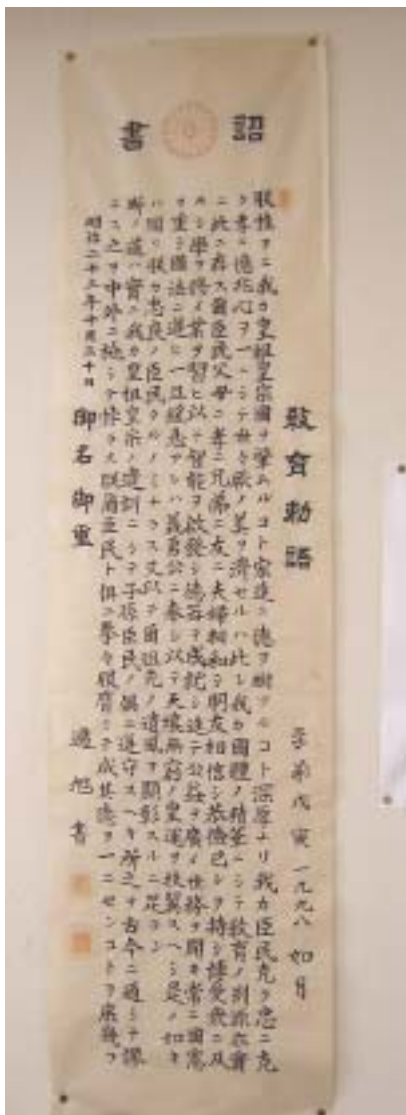 詔書
教育勅語
戊寅一九九八 如月
朕惟フニ我カ皇祖皇宗國ヲ肇ムルコト宏遠ニ德ヲ樹ツルコト深厚ナリ我カ臣民克ク忠ニ克
ク孝ニ億兆心ヲ一ニシテ世々厥ノ美ヲ濟セルハ此レ我カ國體ノ精華ニシテ教育ノ淵源亦實
ニ此ニ存ス爾臣民父母ニ孝ニ兄弟ニ友ニ夫婦相和シ朋友相信シ恭儉己レヲ持シ博愛衆ニ及
ホシ學ヲ修メ業ヲ習ヒ以テ智能ヲ啓發シ德器ヲ成就シ進テ公益ヲ廣メ世務ヲ開キ常ニ國憲
ヲ重シ國法ニ遵ヒ一旦緩急アレハ義勇公ニ奉シ以テ天壤無窮ノ皇運ヲ扶翼スヘシ是ノ如キ
ハ獨リ朕カ忠良ノ臣民タルノミナラス又以テ爾祖先ノ遺風ヲ顯彰スルニ足ラン
斯ノ道ハ實ニ我カ皇祖皇宗ノ遺訓ニシテ子孫臣民ノ俱ニ遵守スヘキ所之ヲ古今ニ通シテ謬
ラス之ヲ中外ニ施シテ悖ラス朕爾臣民ト俱ニ拳々服膺シテ咸其德ヲ一ニセンコトヲ庶幾フ
明治二十三年十月三十日
御名 御璽
旭書